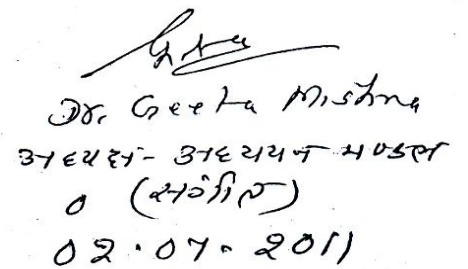 Dr. Geeta Mishra
अध्यक्ष - अध्ययन मण्डल
0 (संगीत)
02.07.2011